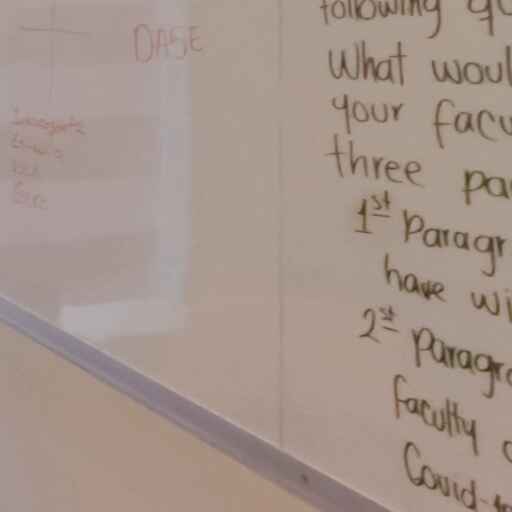 DASE
following qu
What woul
your facu
three pa
1st Paragr
have wi
2st Paragra
faculty
Covid-